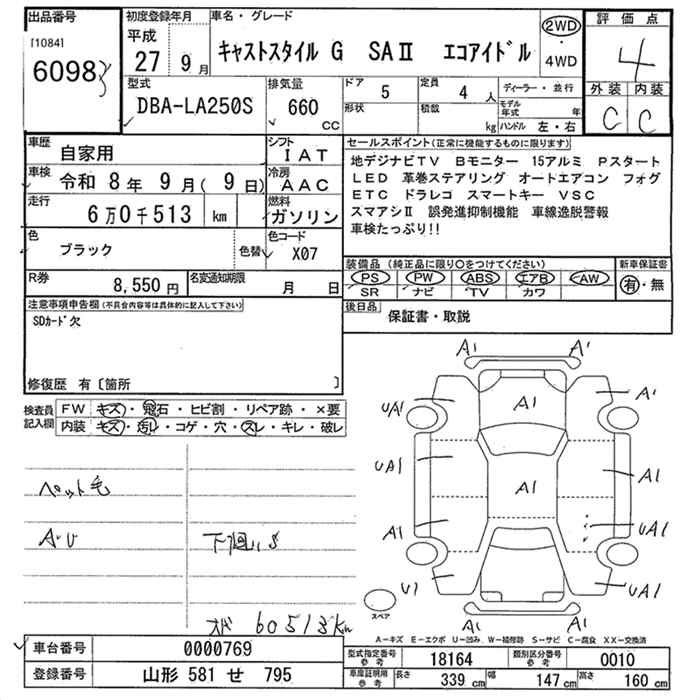 出品番号
[1084]
6098
初度登録年月
平成
27 9月
車名・グレード
キャストスタイル G SAⅡ エコアイドル
2WD
・
4WD
評価点
4
外装 内装
C C
型式
DBA-LA250S
排気量
660
cc
ドア 5
形状
定員 4 人
積載 kg
ディーラー・並行
モデル年式 年
ハンドル 左・右
車歴
自家用
シフト
IAT
車検
令和 8年 9月( 9日)
冷房
AAC
走行
6万0千513 km
燃料
ガソリン
色
ブラック
色替
色コード
X07
R券
8,550円
名変通知期限
月 日
セールスポイント(正常に機能するものに限ります)
地デジナビTV Bモニター 15アルミ Pスタート
LED 革巻ステアリング オートエアコン フォグ
ETC ドラレコ スマートキー VSC
スマアシⅡ 誤発進抑制機能 車線逸脱警報
車検たっぷり!!
装備品 (純正品に限り○をつけてください)
PS PW ABS エアB AW
SR ナビ TV カワ
新車保証書
有・無
後日品
保証書・取説
注意事項申告欄(不具合内容等は具体的に記入して下さい)
SDカード欠
修復歴 有〔箇所 〕
検査員
記入欄
FW キズ・飛石・ヒビ割・リペア跡・×要
内装 キズ・汚レ・コゲ・穴・スレ・キレ・破レ
ペット毛
A・U
下廻りS
オド 60513km
A1 A1
UA1 A1 A1
UA1 A1 A1
A1 UA1
U1 UA1
A1 A1
スペア
A−キズ E−エクボ U−凹み W−補修跡 S−サビ C−腐食 XX−交換済
車台番号
0000769
登録番号
山形 581 せ 795
型式指定番号
参考
18164
類別区分番号
参考
0010
車庫証明用
参考
長さ 339 cm
幅 147 cm
高さ 160 cm